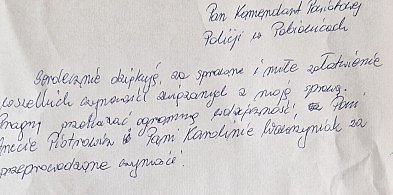 Pan Komendant Powiatowej
Policji w Pabianicach
Serdecznie dziękuję, za sprawne i miłe załatwienie
wszelkich czynności związanych z moją sprawą.
Pragnę przekazać ogromną wdzięczność Pani
Anecie Piotrowskiej i Pani Karolinie Wawrzyniak za
przeprowadzone czynności.